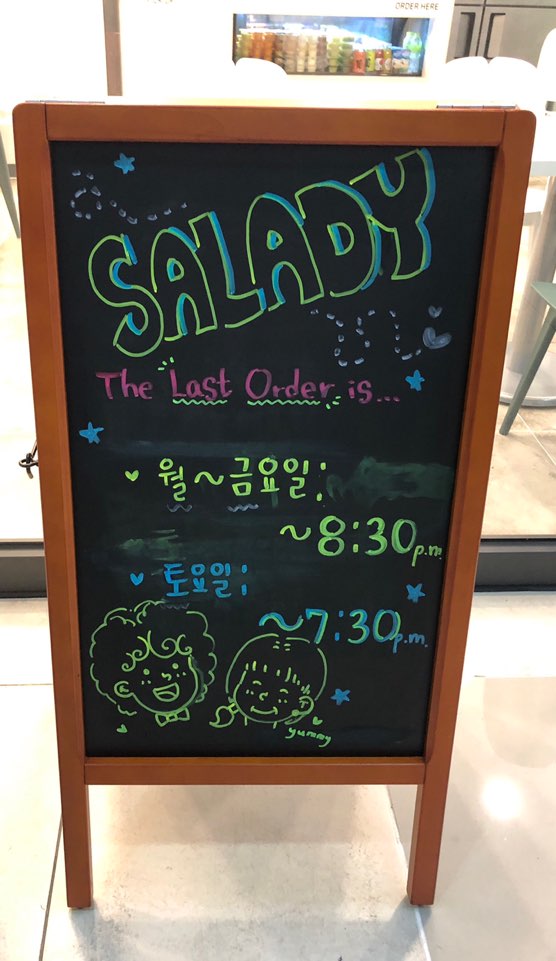 ORDER HERE
SALADY
The Last Order is...
월~금요일:
~8:30p.m.
토요일:
~7:30p.m.
yummy